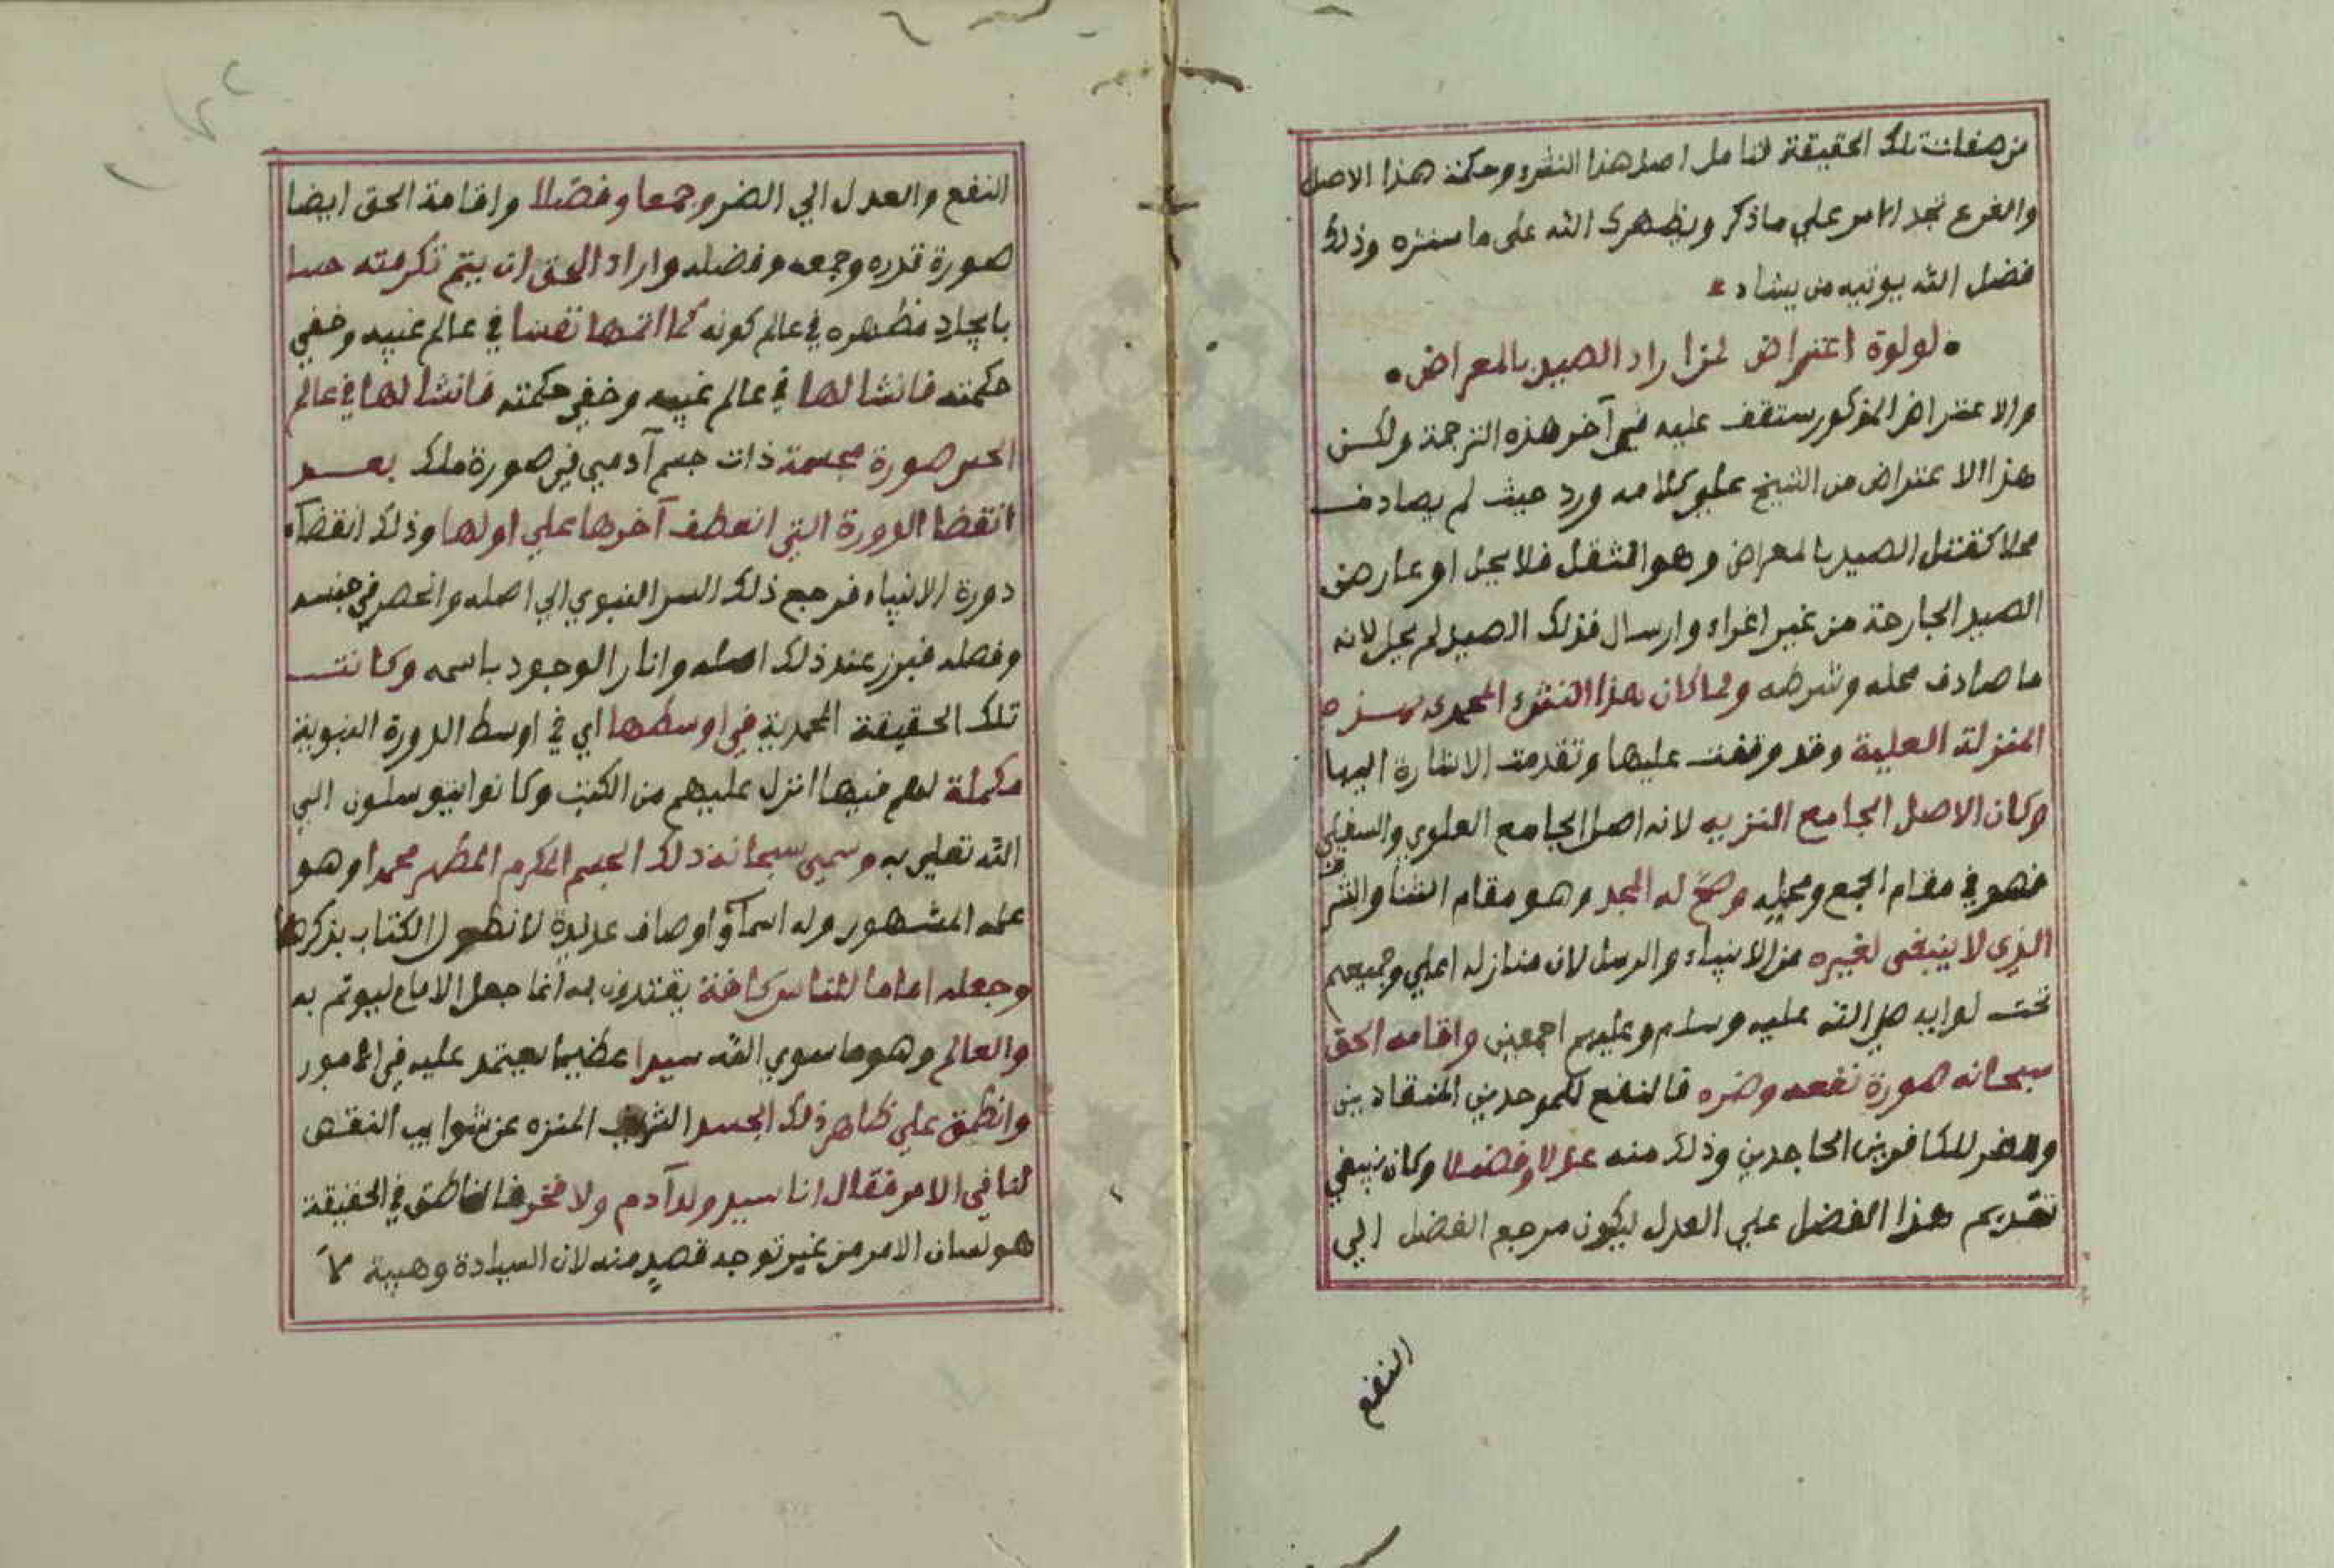 من صفات تلك الحقيقة فتامل اصل هذا النشء وحكمة هذا الاصل
والفرع تجد الامر علي ماذكر ويظهرك الله على ما ستره وذلك
فضل الله يوتيه من يشاء
لولوة اعتراض لمن اراد الصيد بالمعراض
والاعتراض المذكور ستقف عليه في آخر هذه الترجمة ولكن
هذا الاعتراض من الشيخ علي كلامه ورد حيث لم يصادف
محلا كقتل الصيد بالمعراض وهو المثقل فلا يحل او عارض
الصيد الجارحة من غير اغراء وارسال فذلك الصيد لم يحل لانه
ما صادف محله وشرطه ولما كان هذا النشء المحمدي بهذه
المنزلة العلية وقد وقفت عليها وتقدمت الاشارة اليها
وكان الاصل الجامع النزيه لانه اصل الجامع العلوي والسفلي
فهو في مقام الجمع ومحله وصح له المجد وهو مقام الثنا والشرف
الذي لا ينبغي لغيره من الانبياء والرسل لان منازله اعلي وجميعهم
تحت لوايه صلي الله عليه وسلم وعليهم اجمعين واقامه الحق
سبحانه صورة نفعه وضره فالنفع للموحدين المنقادين
والضر للكافرين الجاحدين وذلك منه عدلا وفضلا وكان ينبغي
تقديم هذا الفضل علي العدل ليكون مرجع الفضل الي
النفع
النفع والعدل الي الضر وجمعا وفصلا واقامة الحق ايضا
صورة قدره وجمعه وفضله واراد الحق ان يتم تكرمته حسا
بايجاد مظهره في عالم كونه كما اتمها نفسا في عالم غيبه وخفي
حكمته فانشا لها في عالم غيبه وخفي حكمته فانشا لها في عالم
الحس صورة مجسمة ذات جسم آدمي في صورة ملك بعد
انقضا الدورة التي انعطف آخرها علي اولها وذلك انقضآء
دورة الانبياء فرجع ذلك السر النبوي الي اصله وانحصر في جنسه
وفصله فبرز عند ذلك اصله وانار الوجود باسمه وكانت
تلك الحقيقة المحمدية في اوسطها اي في اوسط الدورة النبوية
مكملة لهم فيها انزل عليهم من الكتب وكانوا يتوسلون الي
الله تعلي به وسمي سبحانه ذلك الجسم المكرم المطهر محمدا وهو
علمه المشهور وله اسمآؤ اوصاف عديدة لا نطول الكتاب بذكرها
وجعله اماما للناس كافة يقتدون به انما جعل الامام ليوتم به
والعالم وهو ما سوي الله سيدا عظيما يعتمد عليه في الامور
وانطق علي ظاهر ذلك الجسد الشريف المنزه عن شوايب النقص
لنا في الامر فقال انا سيد ولد آدم ولا فخر فالناطق في الحقيقة
هو لسان الامر من غير توجه قصد منه لان السيادة وهبية لا